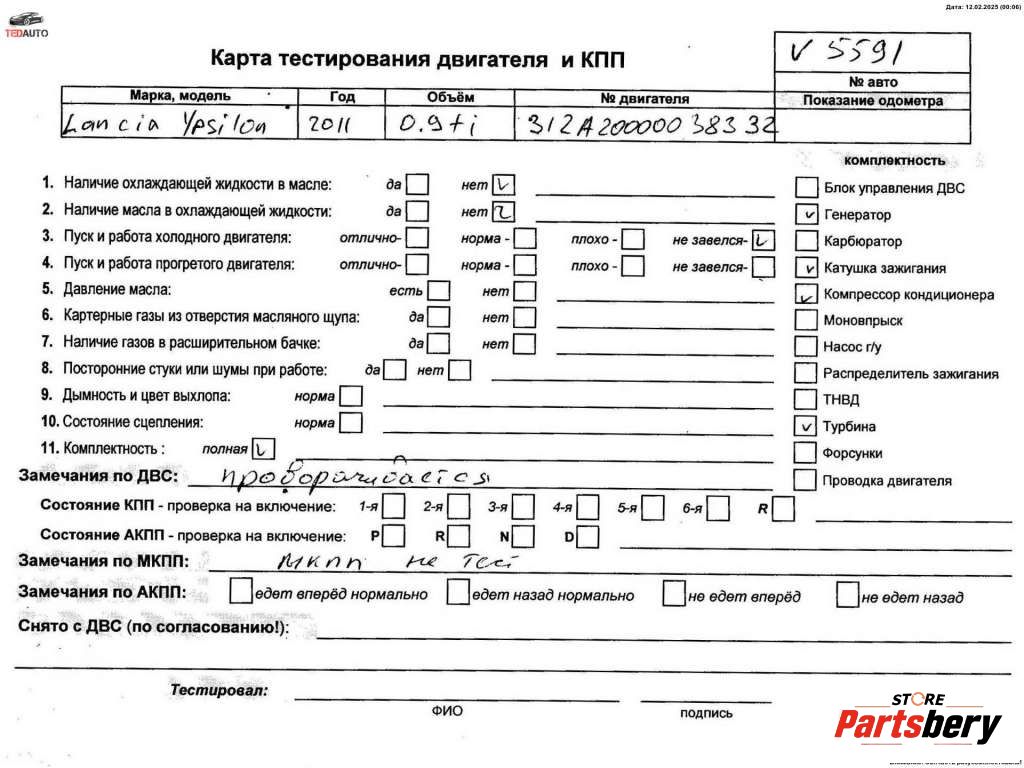 Дата: 12.02.2025 (00:06)
TEDAUTO
Карта тестирования двигателя и КПП
V 5591
№ авто
Марка, модель Год Объём № двигателя Показание одометра
Lancia Ypsilon 2011 0.9ti 312A2000003833Z
комплектность
1. Наличие охлаждающей жидкости в масле: да нет
Блок управления ДВС
2. Наличие масла в охлаждающей жидкости: да нет
Генератор
3. Пуск и работа холодного двигателя: отлично- норма - плохо - не завелся-
Карбюратор
4. Пуск и работа прогретого двигателя: отлично- норма - плохо - не завелся-
Катушка зажигания
5. Давление масла: есть нет
Компрессор кондиционера
6. Картерные газы из отверстия масляного щупа: да нет
Моновпрыск
7. Наличие газов в расширительном бачке: да нет
Насос г/у
8. Посторонние стуки или шумы при работе: да нет
Распределитель зажигания
9. Дымность и цвет выхлопа: норма
ТНВД
10. Состояние сцепления: норма
Турбина
11. Комплектность : полная
Форсунки
Замечания по ДВС: проворачивается
Проводка двигателя
Состояние КПП - проверка на включение: 1-я 2-я 3-я 4-я 5-я 6-я R
Состояние АКПП - проверка на включение: P R N D
Замечания по МКПП: МКПП не тест
Замечания по АКПП: едет вперёд нормально едет назад нормально не едет вперёд не едет назад
Снято с ДВС (по согласованию!):
Тестировал:
ФИО подпись
STORE
Partsbery